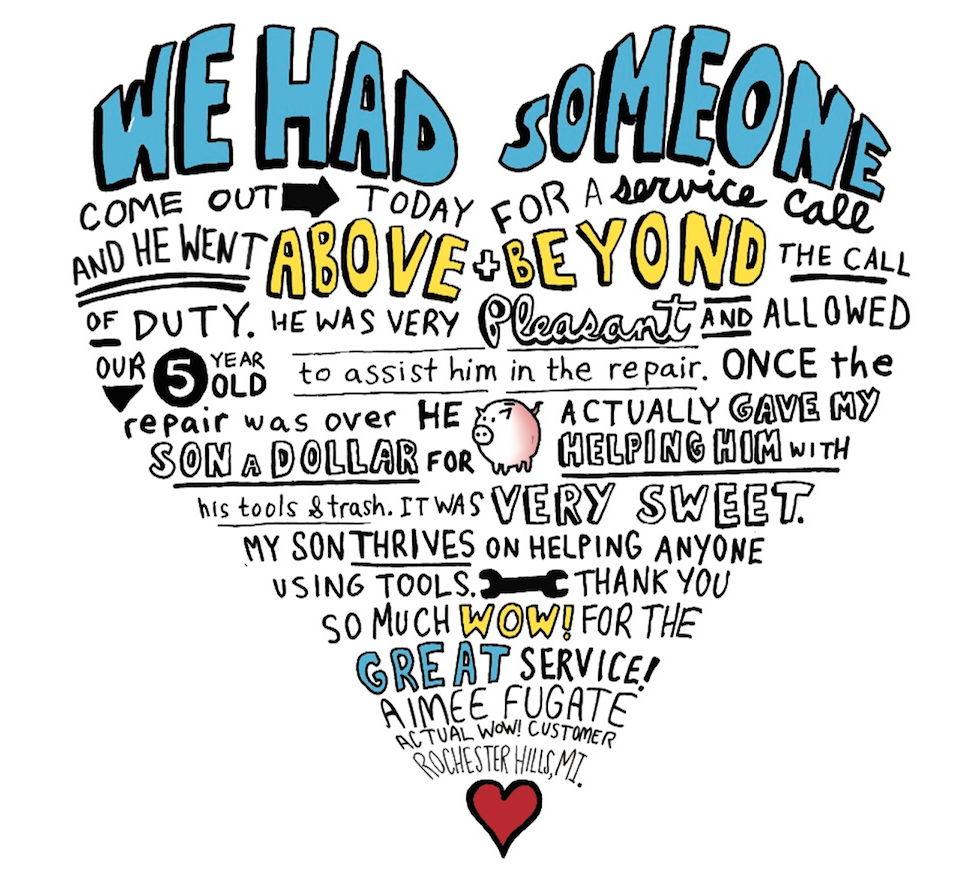 WE HAD SOMEONE
COME OUT TODAY FOR A service call
AND HE WENT ABOVE + BEYOND THE CALL
OF DUTY. HE WAS VERY Pleasant AND ALLOWED
OUR 5 YEAR OLD to assist him in the repair. ONCE the
repair was over HE ACTUALLY GAVE MY
SON A DOLLAR FOR HELPING HIM WITH
his tools & trash. IT WAS VERY SWEET.
MY SON THRIVES ON HELPING ANYONE
USING TOOLS. THANK YOU
SO MUCH WOW! FOR THE
GREAT SERVICE!
AIMEE FUGATE
ACTUAL WOW! CUSTOMER
ROCHESTER HILLS, MI.